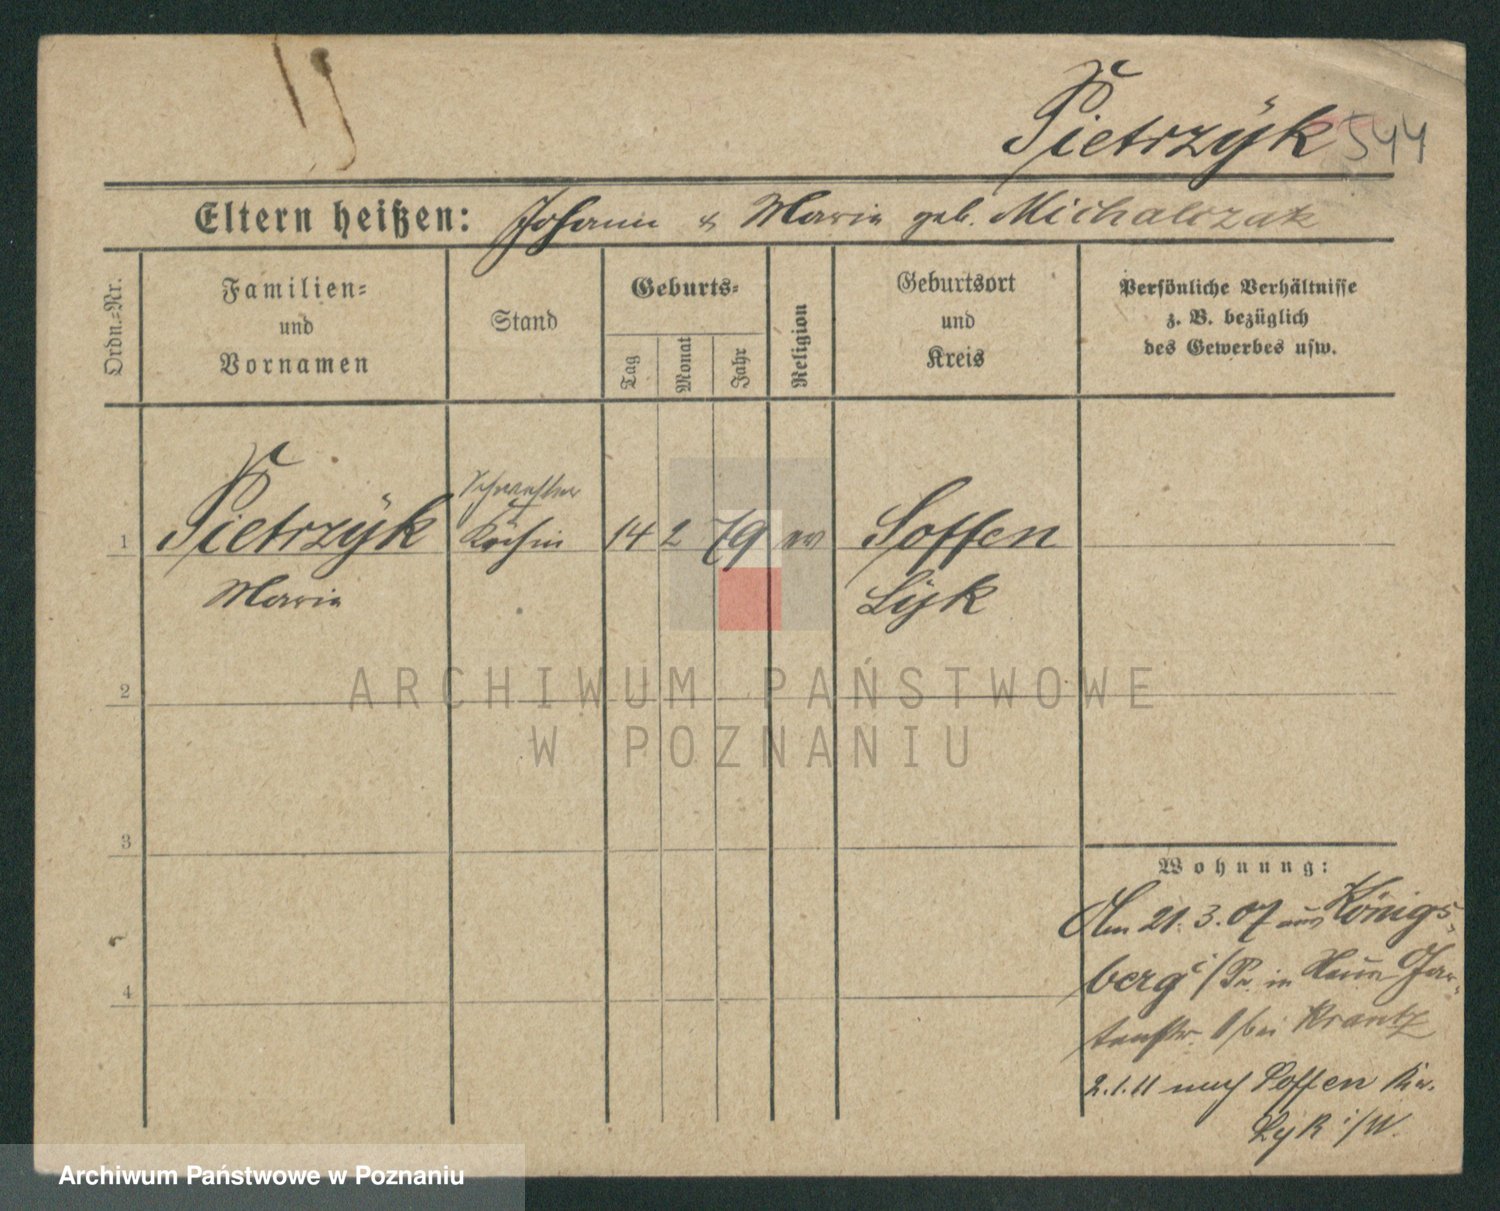 Pietrzÿk 544
Eltern heißen: Johann & Maria geb. Michalczak
Ordn.=Nr.
Familien=
und
Vornamen
Stand
Geburts=
Tag
Monat
Jahr
Religion
Geburtsort
und
Kreis
Persönliche Verhältnisse
z. B. bezüglich
des Gewerbes usw.
Schwester
1 Pietrzÿk Köchin 14 2 79 ev Soffen
Maria Lÿk
ARCHIWUM PAŃSTWOWE
W POZNANIU
2
3
4
Wohnung:
Am 21. 3. 07 aus Königs-
berg i/Pr. in Gar-
tenstr. bei Krantz
2.1.11 nach Soffen Kr.
Lyk i/W.
Archiwum Państwowe w Poznaniu